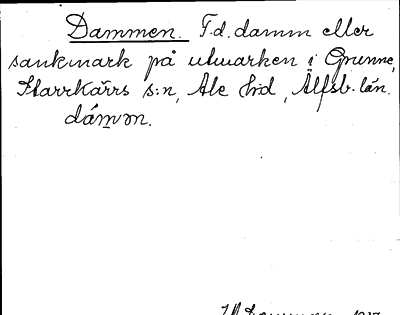 Dammen. F.d. damm eller
sankmark på utmarken i Grunne,
Starrkärrs s:n, Ale hd, Älfsb. län.